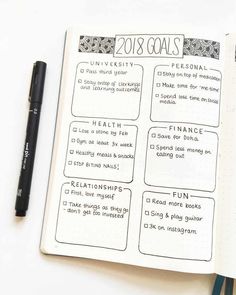 2018 GOALS
UNIVERSITY
Pass third year
Stay on top of
and learning outcomes
PERSONAL
Stay on top of medication
Make time for 'me time'
Spend less time on social
media
HEALTH
Lose a stone by Feb
Gym at least 3x week
Healthy meals & snacks
STOP BITING NAILS!
FINANCE
Save for Doha
Spend less money on
eating out
RELATIONSHIPS
First, love myself
Take things as they go
- don't get too invested
FUN
Read more books
Sing & play guitar
3K on instagram